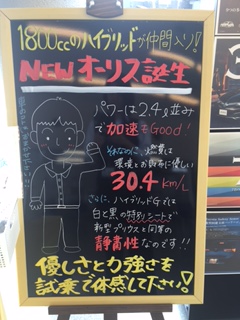 1800ccのハイブリッドが仲間入り!
NEWオーリス誕生
パワーは2.4ℓ並み
で加速もGood!
それなのに、燃費は
環境とお財布に優しい
30.4km/L
さらに、ハイブリッドGでは
白と黒の特別シートで
新型プリウスと同等の
静粛性なのです!!
優しさと力強さを
試乗で体感して下さい!